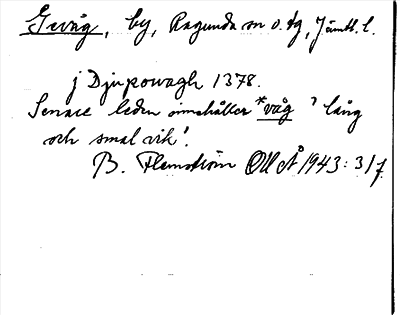 Gevåg, by, Ragunda sn o. tg, Jämtl. l.
j Djupowagh 1378.
Senare leden innehåller *våg 'lång
och smal vik'.
B. Flemström OUÅ 1943: 3/7.